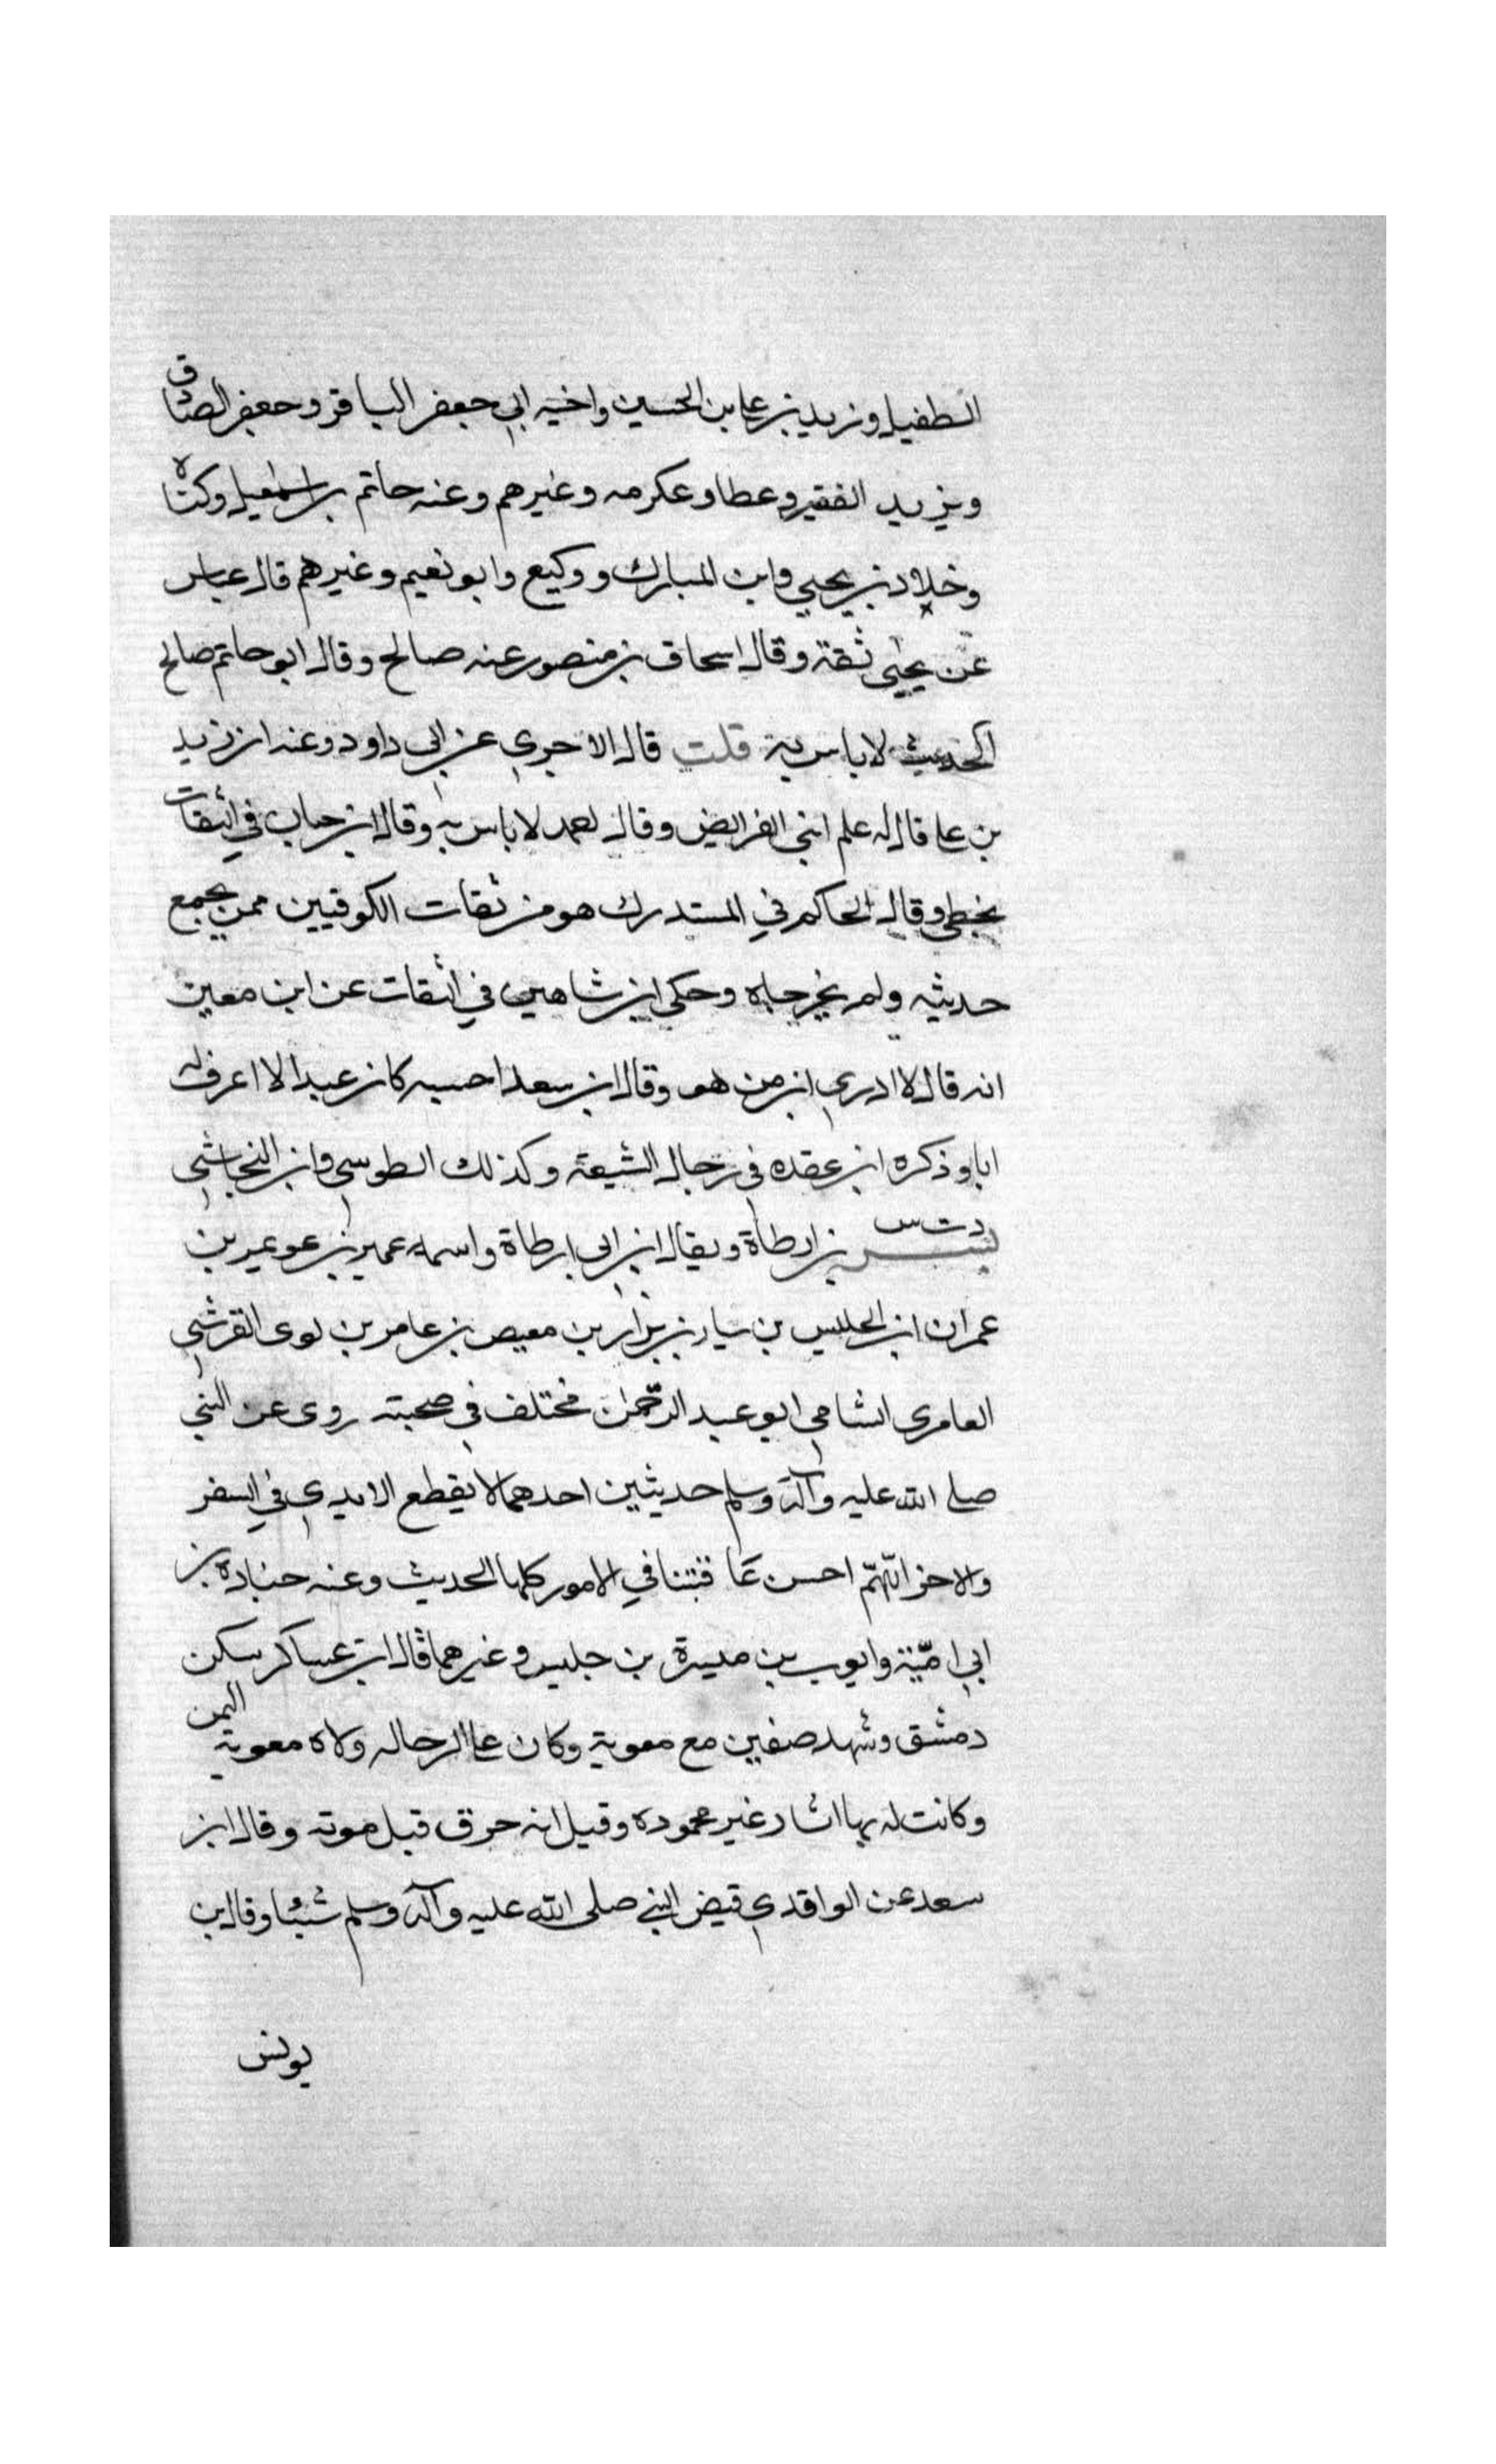 الطفيل وزيد بن علي بن الحسين واخيه ابي جعفر الباقر وجعفر الصادق
ويزيد الفقير وعطا وعكرمه وغيرهم وعنه حاتم بن اسمعيل وكناه
وخلاد بن يحيي وابن المبارك ووكيع وابو نعيم وغيرهم قال عباس
عن يحيى ثقة وقال اسحاق بن منصور عنه صالح وقال ابو حاتم صالح
الحديث لا باس به قلت قال الاجري عن ابي داود وعنه ان زيد
بن علي قال له علم ابني الفرايض وقال لاحمد لا باس به وقال ابن حبان في الثقات
يخطي وقال الحاكم في المستدرك هو من ثقات الكوفيين ممن يجمع
حديثه ولم يخرجاه وحكى ابن شاهين في الثقات عن ابن معين
انه قال لا ادري ابن من هو وقال ابن سعد احسبه كان عبدا لا اعرف له
ابا وذكره ابن عقده في رجال الشيعة وكذلك الطوسي وابن النجاشي
د ت س
بسر بن ارطاة ويقال ابن ابي ارطاة واسمه عمير بن عويمر بن
عمران ابن الحليس بن سيار بن نزار بن معيص بن عامر بن لوى القرشي
العامري الشامي ابو عبد الرحمن مختلف في صحبته روى عن النبي
صلى الله عليه وآله وسلم حديثين احدهما لا يقطع الايدي في السفر
والاخر اللهم احسن عاقبتنا في الامور كلها الحديث وعنه جنادة بن
ابي امية وايوب بن ميسرة بن حلبس وغيرهما قال ابن عساكر سكن
دمشق وشهد صفين مع معوية وكان على الرحاله ولاه معوية اليمن
وكانت له بها اثار غير محموده وقيل انه خرق قبل موته وقال ابن
سعد عن الواقدي قبض النبي صلى الله عليه وآله وسلم شيئا وقال بن
يونس